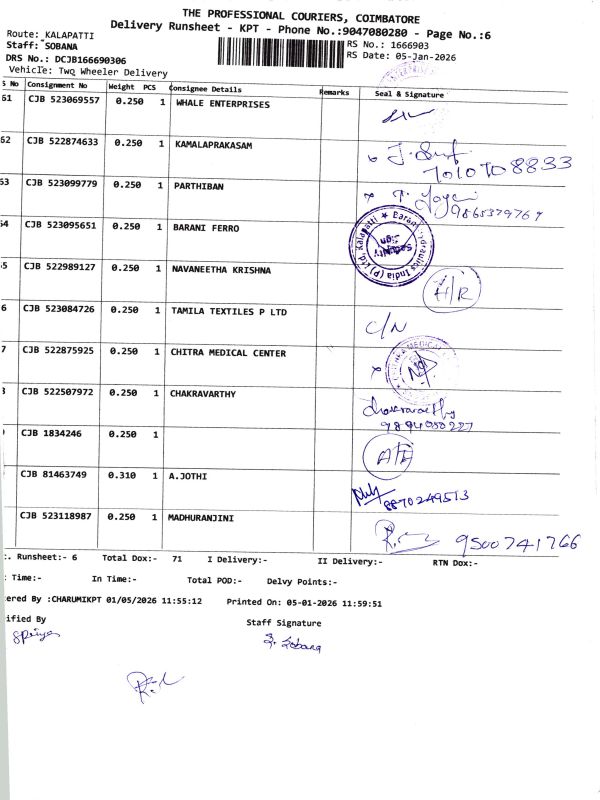 THE PROFESSIONAL COURIERS, COIMBATORE
Delivery Runsheet - KPT - Phone No.:9047080280 - Page No.:6
Route: KALAPATTI
Staff: SOBANA
RS No.: 1666903
DRS No.: DCJB166690306
RS Date: 05-Jan-2026
Vehicle: Two Wheeler Delivery
S No Consignment No Weight PCS Consignee Details Remarks Seal & Signature
61 CJB 523069557 0.250 1 WHALE ENTERPRISES
62 CJB 522874633 0.250 1 KAMALAPRAKASAM
7010708833
53 CJB 523099779 0.250 1 PARTHIBAN
9865379767
54 CJB 523095651 0.250 1 BARANI FERRO
Barani Hydraulics India (P) Ltd. Kalapatti
Security Sign
55 CJB 522989127 0.250 1 NAVANEETHA KRISHNA
H/R
6 CJB 523084726 0.250 1 TAMILA TEXTILES P LTD
C/N
7 CJB 522875925 0.250 1 CHITRA MEDICAL CENTER
8 CJB 522507972 0.250 1 CHAKRAVARTHY
Chakravarthy
9894050227
CJB 1834246 0.250 1
CJB 81463749 0.310 1 A.JOTHI
8870249513
CJB 523118987 0.250 1 MADHURANJINI
9500741766
:. Runsheet:- 6 Total Dox:- 71 I Delivery:- II Delivery:- RTN Dox:-
: Time:- In Time:- Total POD:- Delvy Points:-
tered By :CHARUMIKPT 01/05/2026 11:55:12 Printed On: 05-01-2026 11:59:51
ified By Staff Signature
S. Sobana